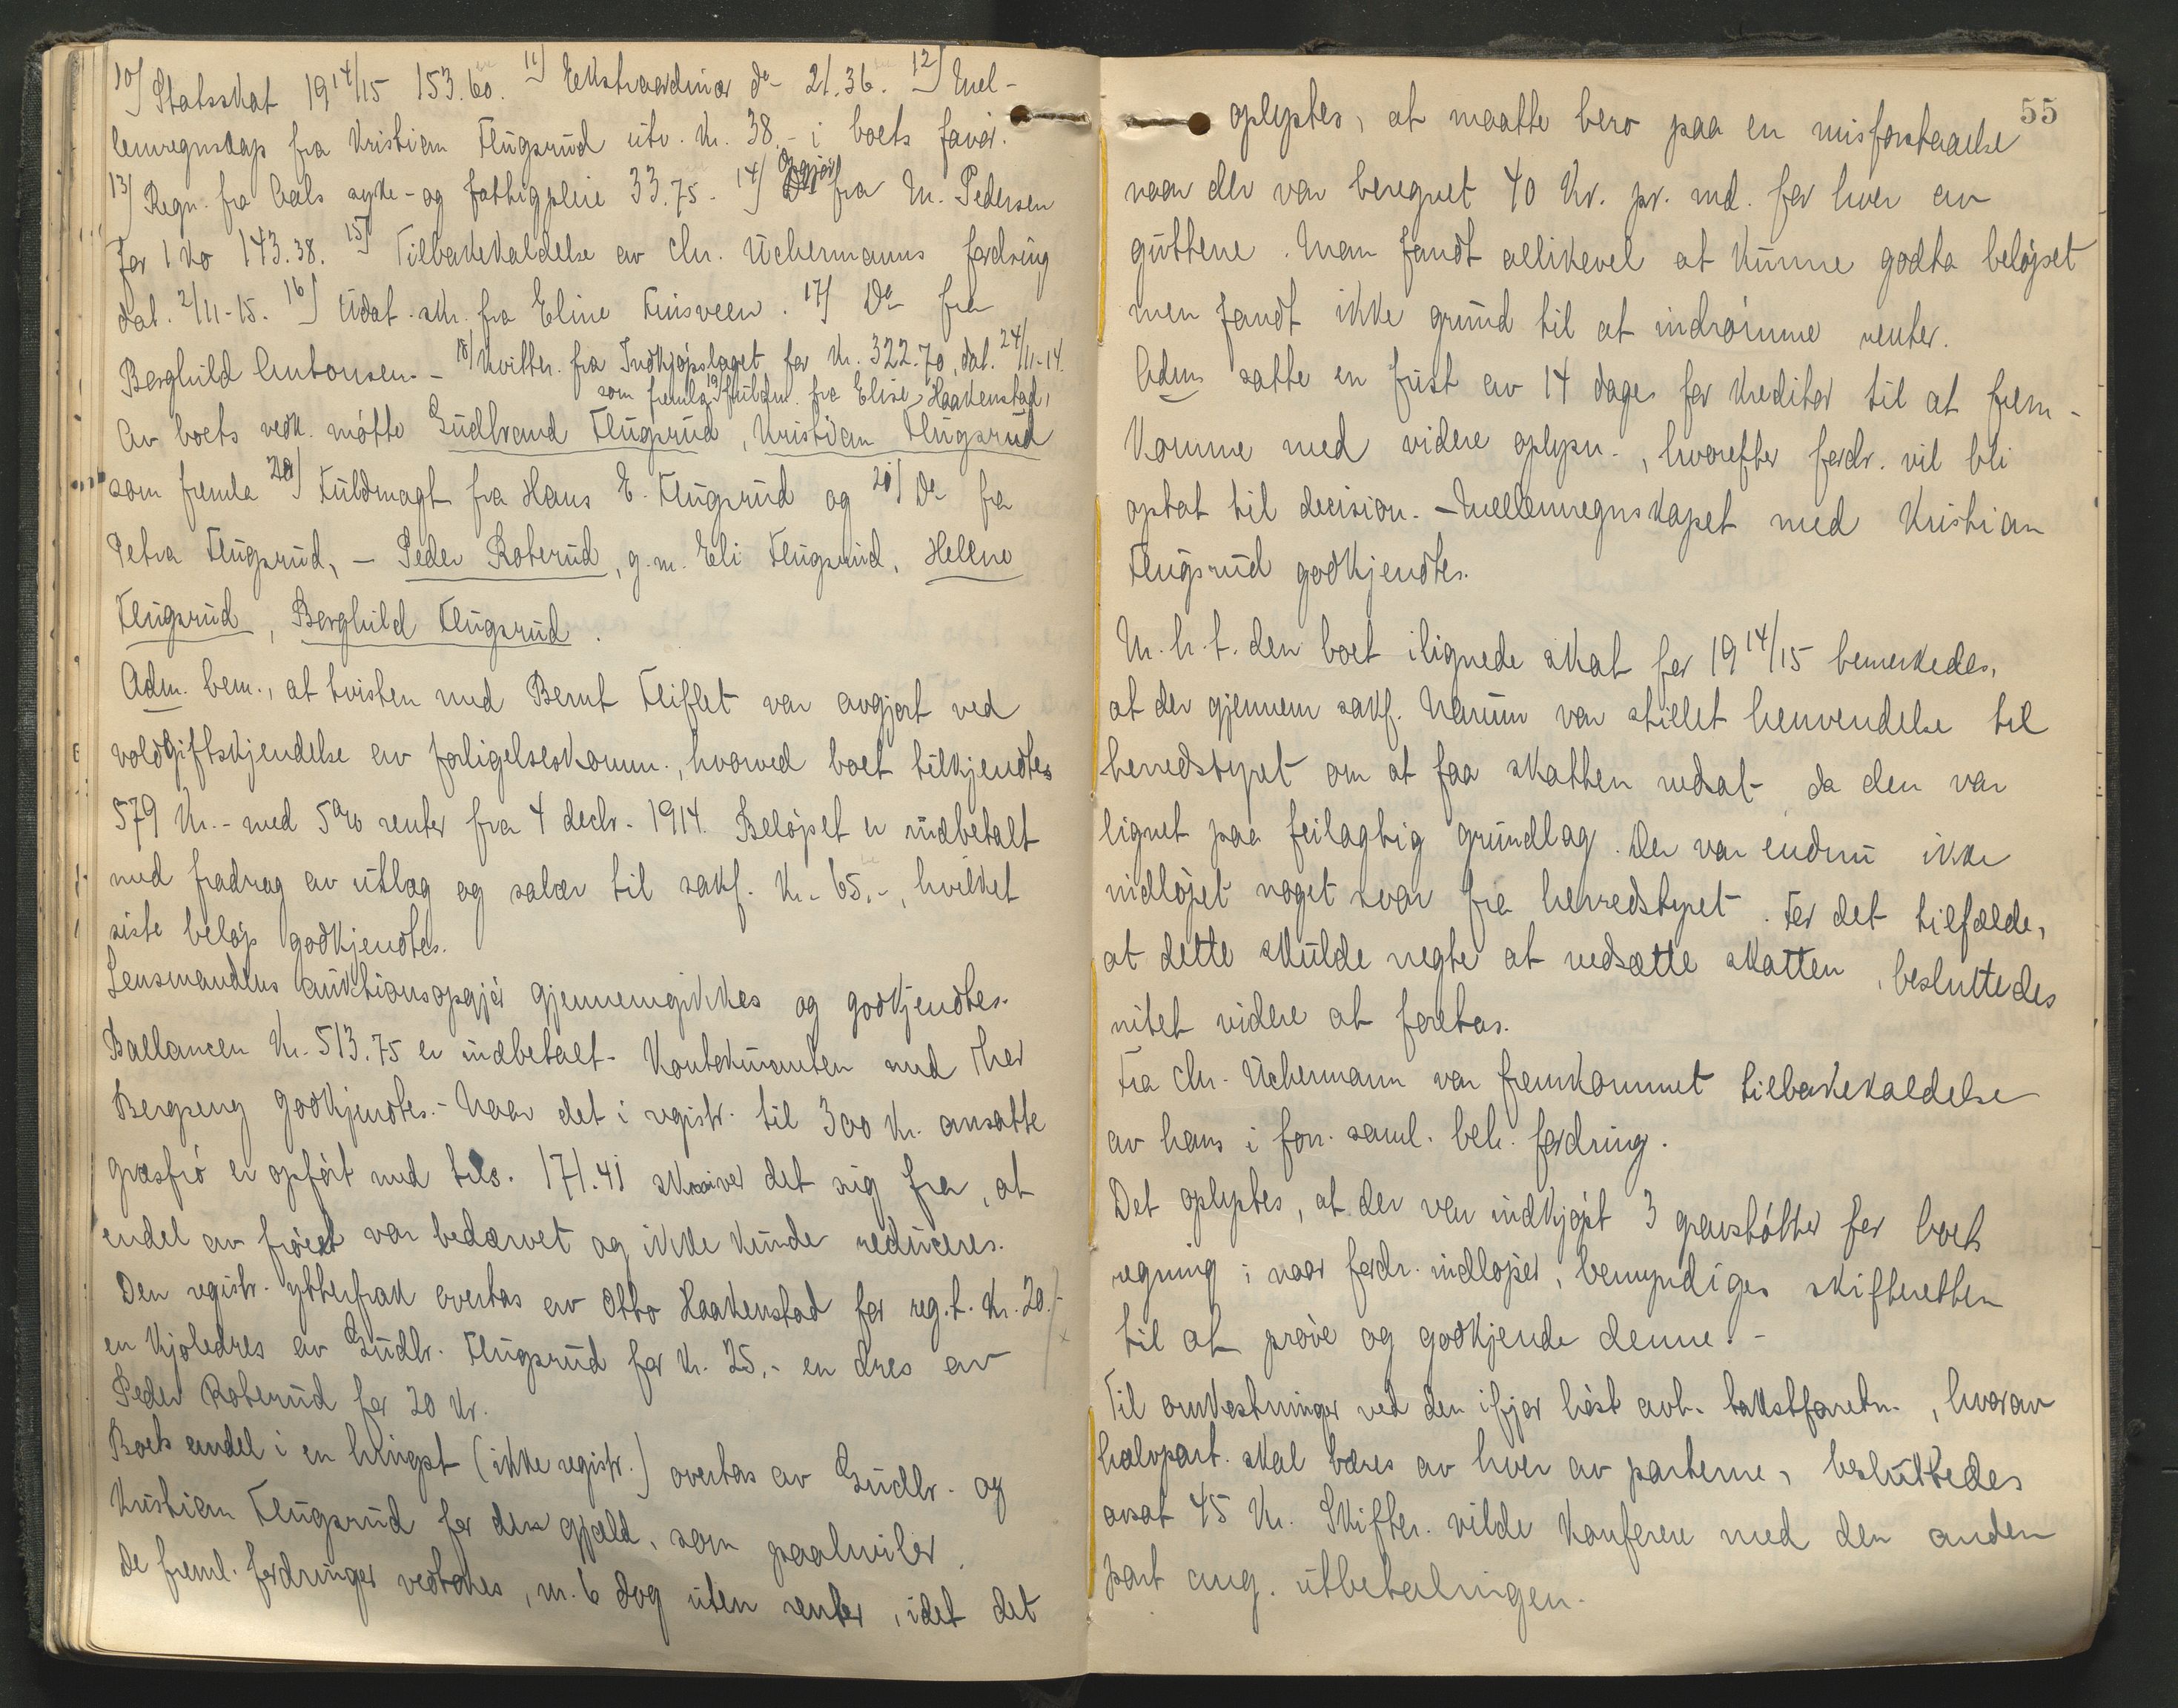 10) Statsskat 19 14/15 153.60. 11) Ekstraordinær do 21.36. 12) Mel-
lemregnskap fra Kristian Flugsrud utv. Kr. 38.- i boets favør.
13) Regn. fra Aals syke- og fattigpleie 33.75 - 14) Opgjør fra M. Pedersen
for 1 ko 143.38. 15) Tilbakekaldelse av Chr. Uchermanns fordring
dat. 2/11-15. 16) Udat. skr. fra Eline Tuisveen. 17) Do fra
Borghild Antonsen. - 18) Kvitter. fra Indkjøpslaget for Kr. 322.70, dat. 24/11-14.
som fremla 19) fuldm. fra Elise Haakenstad,
Av boets vedk. møtte Gudbrand Flugsrud, Kristian Flugsrud
som fremla 20) Fuldmagt fra Hans E. Flugsrud og 21) Do fra
Petra Flugsrud, - Peder Roterud, g.m. Eli Flugsrud, Hellne
Flugsrud, Borghild Flugsrud.
Adm. bem., at tvisten med Bernt Fliflet var avgjort ved
voldgiftskjendelse av forligelseskomm., hvorved boet tilkjendtes
579 Kr. - med 5% renter fra 4 decbr. 1914. Beløpet er indbetalt
med fradrag av utlæg og salær til sakf. Kr. 65.-, hvilket
siste beløp godkjendtes.
Lensmandens auktionsopgjør gjennemgikkes og godkjendtes.
Ballancen Kr. 513.75 er indbetalt. Kontokuranten med Ther
Bergseng godkjendtes. - Naar det i registr. til 300 Kr. ansatte
græsfrø er opført med tils. 171.41 skriver det sig fra, at
endel av frøet var bedærvet og ikke kunde reduceres.
Den registr. ytterfrak overtas av Otto Haakenstad for reg.t. Kr. 20.-
en kjoledres av Gudbr. Flugsrud for Kr. 25.- en dres av
Peder Roterud for 20 Kr.
Boets andel i en hingst (ikke registr.) overtas av Gudbr. og
Kristian Flugsrud for den gjæld, som paahviler.
De freml. fordringer vedtokes, nr. 6 dog uten renter, idet det
55
oplystes, at maatte bero paa en misforstaaelse
naar der var beregnet 40 Kr. pr. md. for hver av
guttene. Man fandt allikevel at kunne godta beløpet
men fandt ikke grund til at indrømme renter.
Adm. satte en frist av 14 dage for kreditor til at frem-
komme med videre oplysn., hvorefter fordr. vil bli
optat til decision. - Mellemregnskapet med Kristian
Flugsrud godkjendtes.
M. h. t. den boet ilignede skat for 19 14/15 bemerkedes,
at der gjennem sakf. Narum var stillet henvendelse til
herredstyret om at faa skatten nedsat da den var
lignet paa feilagtig grundlag. Der var endnu ikke
indløpet noget svar fra herredstyret. For det tilfælde,
at dette skulde negte at nedsætte skatten, besluttedes
intet videre at foretas.
Fra Chr. Uchermann var fremkommet tilbakekaldelse
av hans i forr. saml. beh. fordring.
Det oplystes, at der var indkjøpt 3 gravstøtter for boets
regning; naar fordr. indløper, bemyndiges skifteretten
til at prøve og godkjende denne. -
Til omkostninger ved den ifjor høst avh. takstforretn., hvorav
halvpart. skal bæres av hver av parterne, besluttedes
avsat 45 Kr. Skifter. vilde konferere med den anden
part ang. utbetalingen.